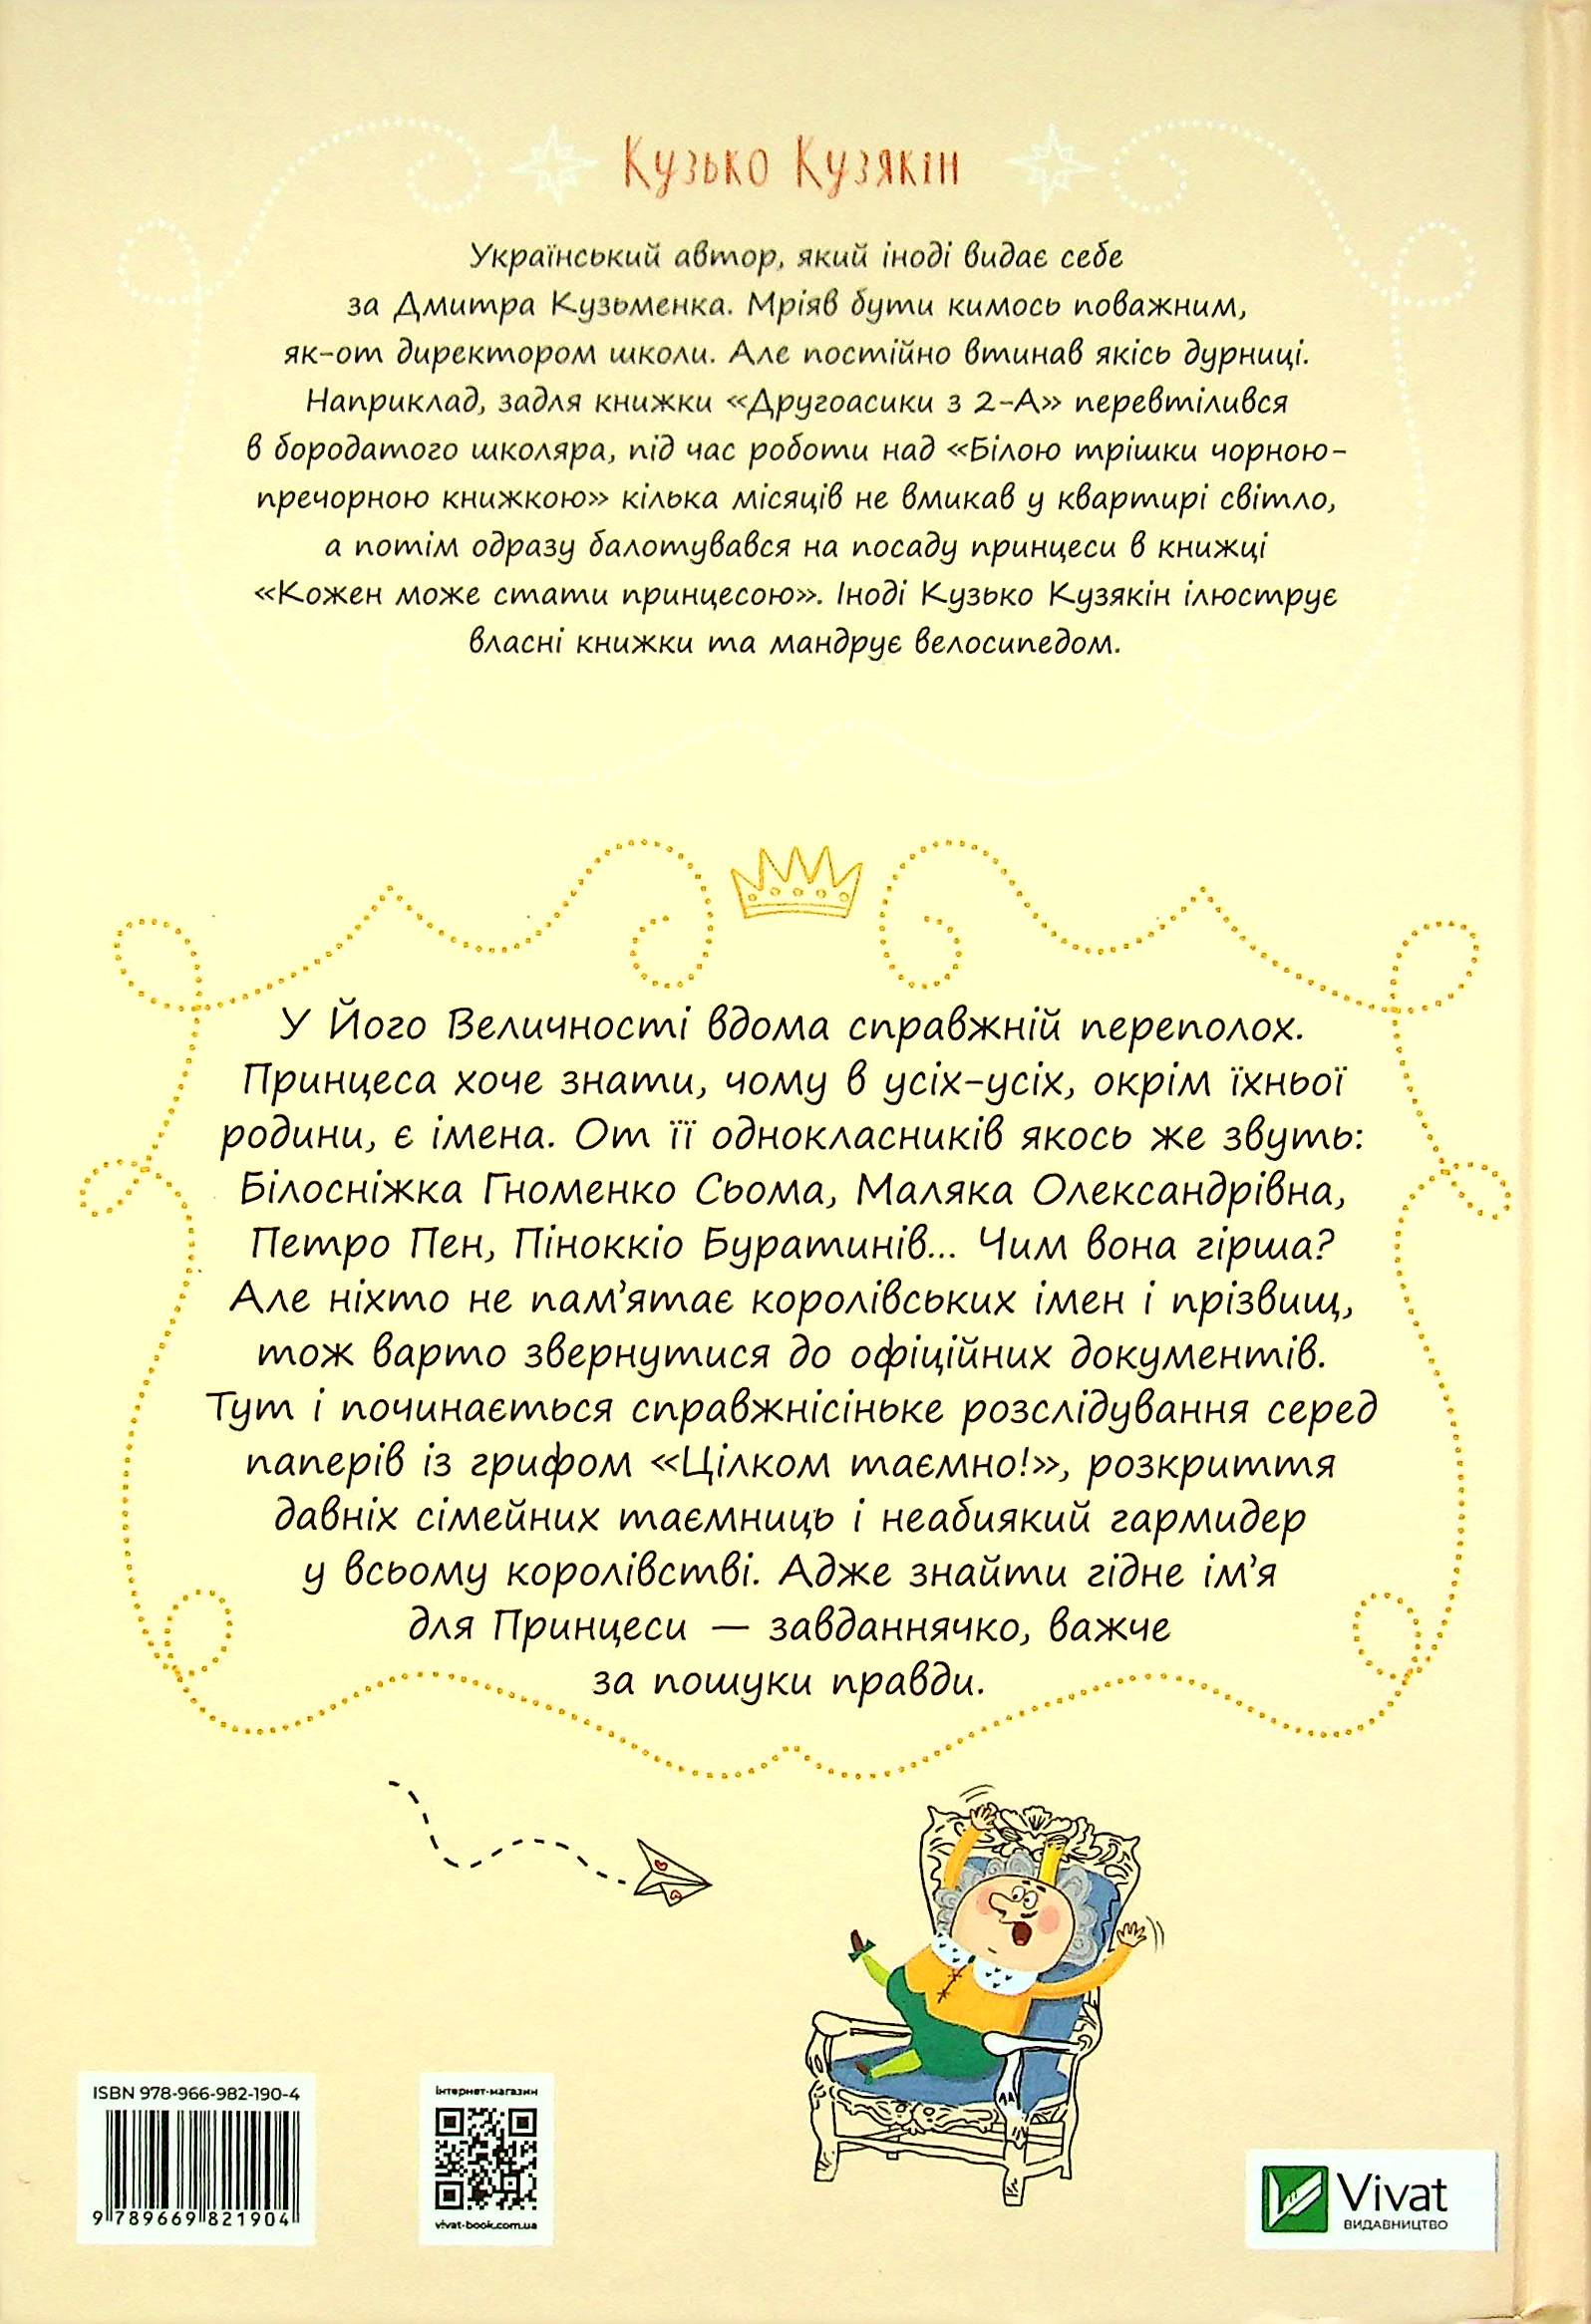 Кузько Кузякін
Український автор, який іноді видає себе
за Дмитра Кузьменка. Мріяв бути кимось поважним,
як-от директором школи. Але постійно втинав якісь дурниці.
Наприклад, задля книжки «Другоасики з 2-А» перевтілився
в бородатого школяра, під час роботи над «Білою трішки чорною-
пречорною книжкою» кілька місяців не вмикав у квартирі світло,
а потім одразу балотувався на посаду принцеси в книжці
«Кожен може стати принцесою». Іноді Кузько Кузякін ілюструє
власні книжки та мандрує велосипедом.
У Його Величності вдома справжній переполох.
Принцеса хоче знати, чому в усіх-усіх, окрім їхньої
родини, є імена. От її однокласників якось же звуть:
Білосніжка Гноменко Сьома, Маляка Олександрівна,
Петро Пен, Піноккіо Буратинів... Чим вона гірша?
Але ніхто не пам'ятає королівських імен і прізвищ,
тож варто звернутися до офіційних документів.
Тут і починається справжнісіньке розслідування серед
паперів із грифом «Цілком таємно!», розкриття
давніх сімейних таємниць і неабиякий гармидер
у всьому королівстві. Адже знайти гідне ім'я
для Принцеси — завданнячко, важче
за пошуки правди.
ISBN 978-966-982-190-4
9 789669 821904
інтернет-магазин
vivat-book.com.ua
Vivat
ВИДАВНИЦТВО